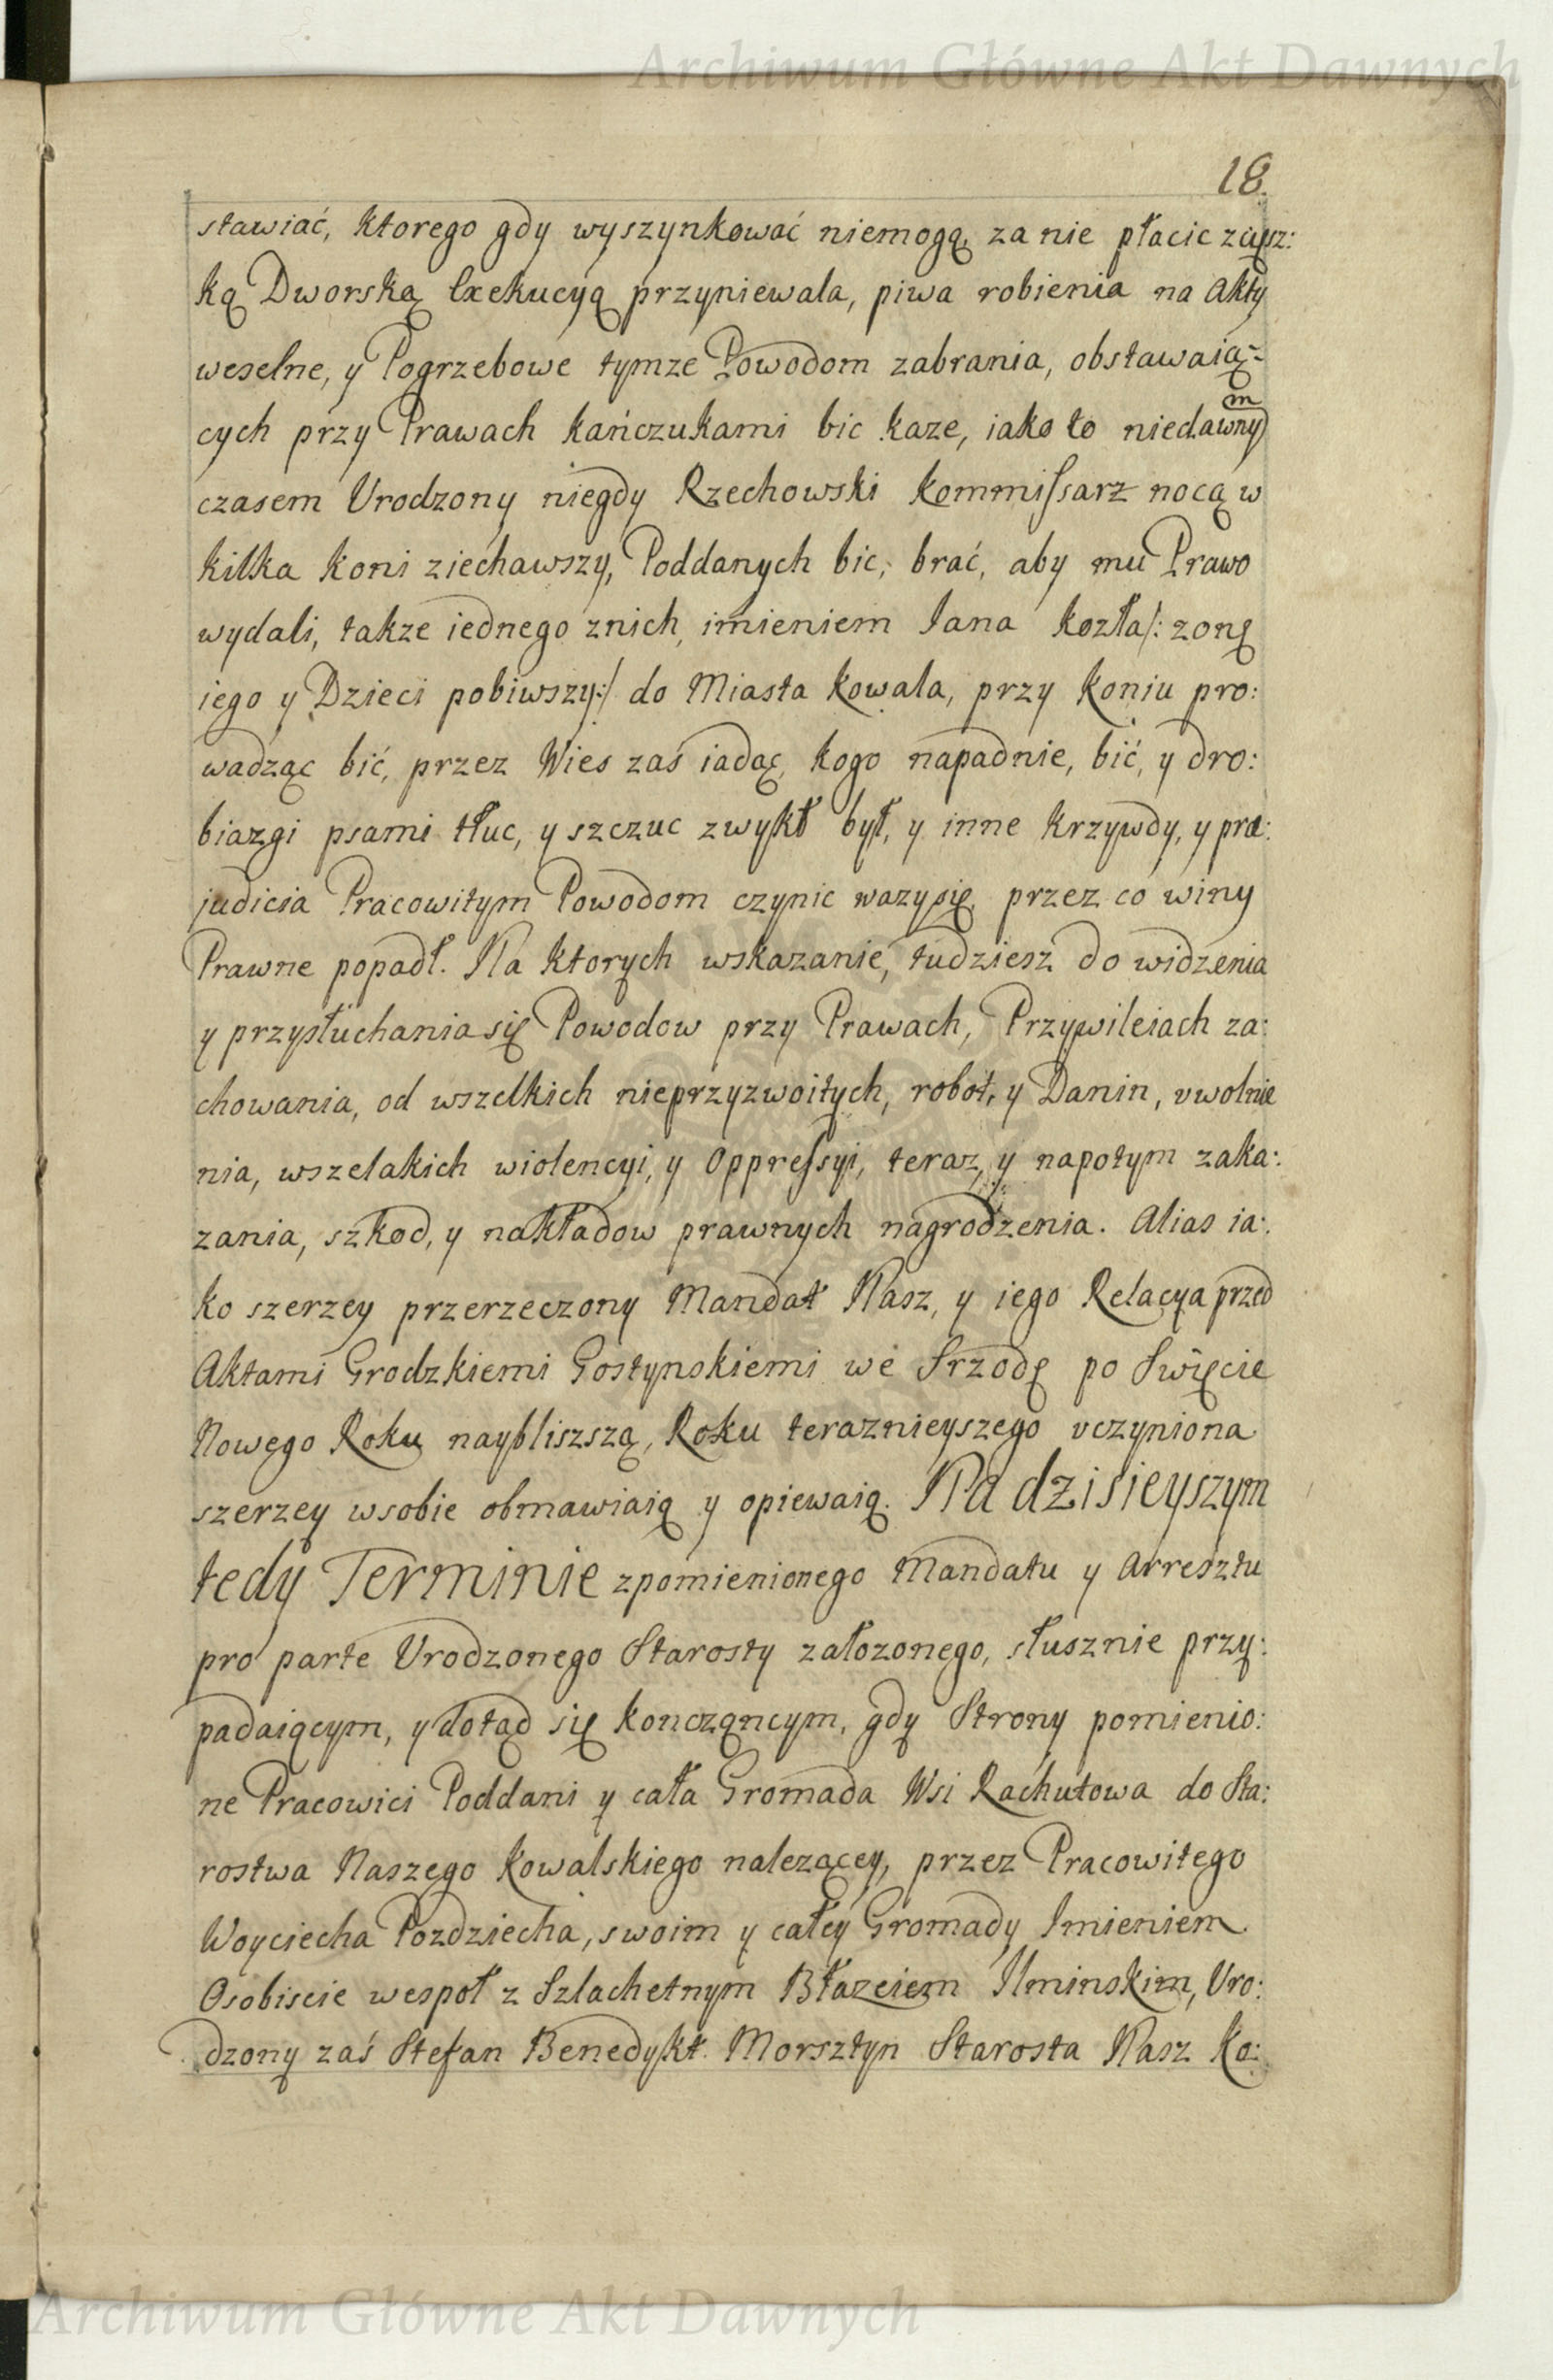 Archiwum Główne Akt Dawnych
18.
stawiać, ktorego gdy wyszynkować niemogą, za nie płacic zcięsz:
ką Dworską Exekucyą przyniewala, piwa robienia na Akty
weselne, y Pogrzebowe tymze Powodom zabrania, obstawaią=
cych przy Prawach kańczukami bic kaze, iako to niedawnym
czasem Urodzony niegdy Rzechowski Kommiſsarz nocą w
kilka koni ziechawszy, Poddanych bic, brać, aby mu Prawo
wydali, takze iednego znich, imieniem Iana Kozła/: zonę
iego y Dzieci pobiwszy:/ do Miasta Kowala, przy koniu pro:
wadząc bić, przez Wies zaś iadąc, kogo napadnie, bić, y dro:
biazgi psami tłuc, y szczuc zwykł był, y inne krzywdy, y præ:
judicia Pracowitym Powodom czynic wazy się, przez co winy
Prawne popadł. Na ktorych wskazanie, tudziesz do widzenia
y przysłuchania się Powodow przy Prawach, Przywileiach za:
chowania, od wszelkich nieprzyzwoitych, robot, y Danin, uwolnie
nia, wszelakich wiolencyi, y Oppreſsyi, teraz, y napotym zaka:
zania, szkod, y nakładow prawnych nagrodzenia. Alias ia:
ko szerzey przerzeczony Mandat Nasz, y iego Relacya przed
Aktami Grodzkiemi Gostynskiemi we Srzodę po Swięcie
Nowego Roku naybliszszą, Roku teraznieyszego uczyniona
szerzey wsobie obmawiaią y opiewaią. Na dzisieyszym
tedy Terminie zpomienionego Mandatu y Arresztu
pro parte Urodzonego Starosty załozonego, słusznie przy:
padaiącym, y dotąd się konczącym, gdy Strony pomienio:
ne Pracowici Poddani y cała Gromada Wsi Rachutowa do Sta:
rostwa Naszego Kowalskiego nalezącey, przez Pracowitego
Woyciecha Pozdziecha, swoim y całey Gromady Imieniem
Osobiscie wespoł z Szlachetnym Błazeiem Ilminskim, Uro:
dzony zaś Stefan Benedykt Morsztyn Starosta Nasz Ko:
Archiwum Główne Akt Dawnych